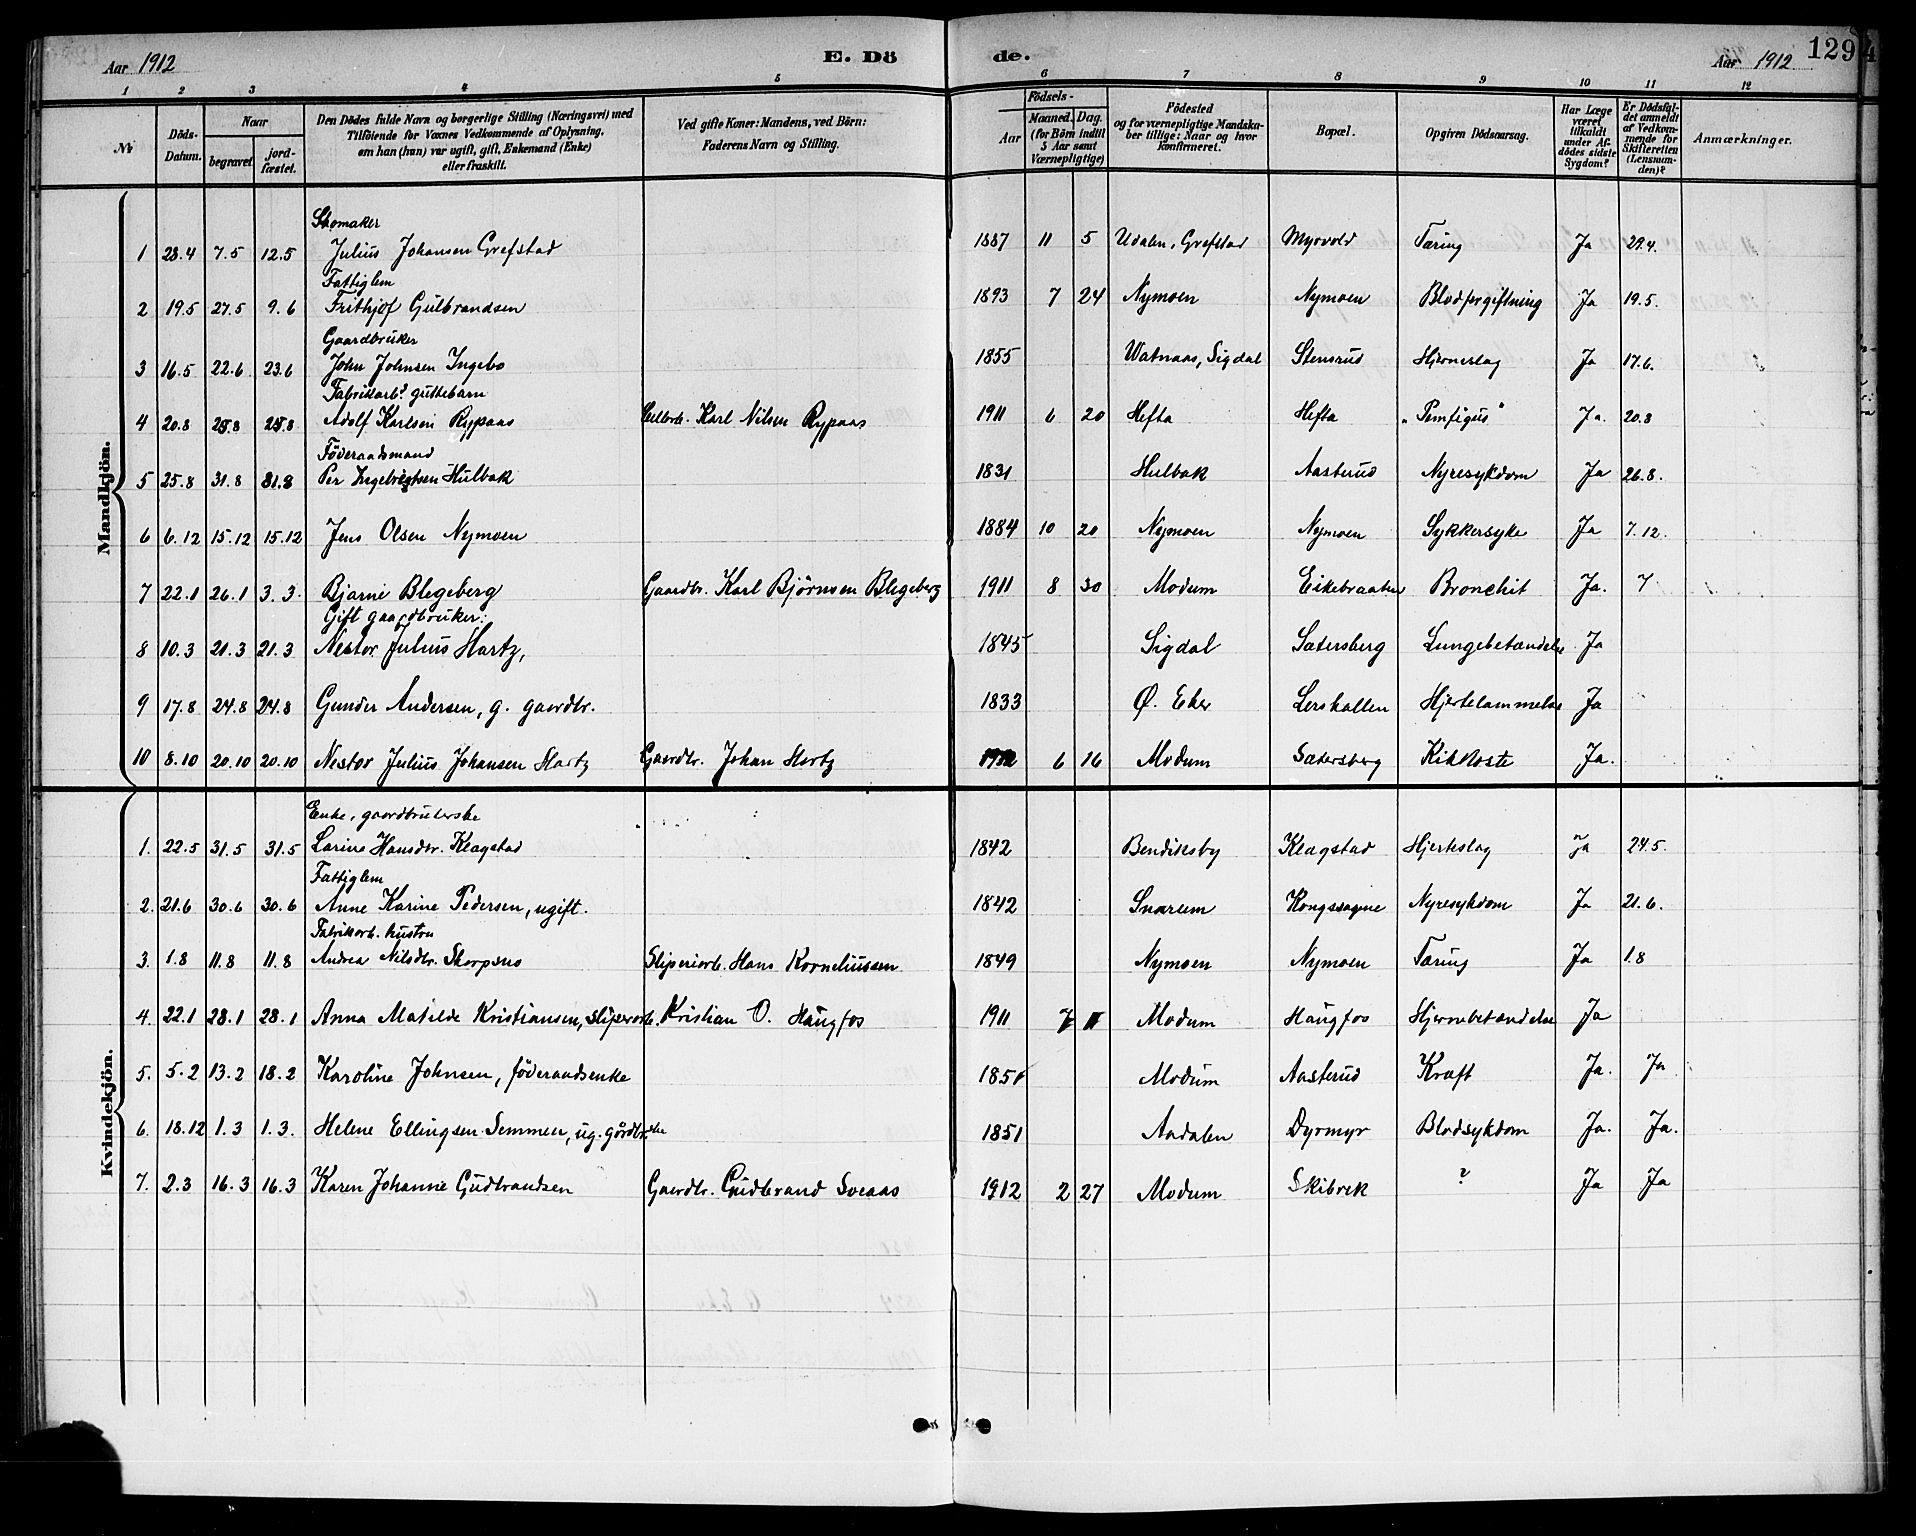 Aar 1912 E. Dö de. Aar 1912 129
1 2 3 4 5 6 7 8 9 10 11 12
№ Döds-Datum. Naar begravet. jordfæstet. Den Dödes fulde Navn og borgerlige Stilling (Næringsvei) med Tilföiende for Voxnes Vedkommende af Oplysning, om han (hun) var ugift, gift, Enkemand (Enke) eller fraskilt. Ved gifte Koner: Mandens, ved Börn: Faderens Navn og Stilling. Födsels- Aar Maaned. Dag. (for Börn indtil 5 Aar samt Værnepligtige) Födested og for værnepligtige Mandskaber tillige: Naar og hvor konfirmeret. Bopæl. Opgiven Dödsaarsag. Har Læge været tilkaldt under Afdödes sidste Sygdom? Er Dödsfaldet anmeldt af Vedkommende for Skifteretten (Lensmanden)? Anmærkninger.
Mandkjön.
Skomaker
1 28.4 7.5 12.5 Julius Johansen Grefstad 1887 11 5 Udalen, Grefstad Myrvold Tæring Ja 29.4.
Fattiglem
2 19.5 27.5 9.6 Frithjof Gulbrandsen 1893 7 24 Nymoen Nymoen Blodforgiftning Ja 19.5.
Gaardbruker
3 16.5 22.6 23.6 John Johnsen Ingebo 1855 Watnaas, Sigdal Stensrud Hjerneslag Ja 17.6.
Fabrikarb. guttebarn
4 20.8 25.8 25.8 Adolf Karlsen Rypaas Karl Nilsen Rypaas 1911 6 20 Hefta Hefta "Pemfigus" Ja. 20.8
Føderaadsmand
5 25.8 31.8 31.8 Per Ingebrigtsen Hulbak 1831 Hulbak Aasterud Nyresykdom Ja 26.8.
6 6.12 15.12 15.12 Jens Olsen Nymoen 1884 10 20 Nymoen Nymoen Sykkersyke Ja 7.12.
7 22.1 26.1 3.3. Bjarne Blegeberg Gaardbr. Karl Bjørnsen Blegeberg 1911 8 30 Modum Eikebraaten Bronchit Ja. 7
Gift gaardbruker:
8 10.3 21.3 21.3 Nestor Julius Hartz, 1845 Sigdal Sætersberg Lungebetændelse Ja
9 17.8 24.8 24.8 Gunder Andersen, g. gaardbr. 1833 Ø. Eker Lerskallen Hjertelammelse Ja
10 8.10 20.10 20.10 Nestor Julius Johansen Hartz Gaardbr. Johan Hartz 1912 6 16 Modum Sætersberg Kikhoste Ja.
Kvindekjön.
Enke, gaardbrukerske
1. 22.5 31.5 31.5 Larine Hansdtr. Klagstad 1842 Bendiksby Klagstad Hjerteslag Ja 24.5.
Fattiglem
2. 21.6 30.6 30.6 Anne Karine Pedersen, ugift. 1842 Snarum Kongssagene Nyresykdom Ja 21.6.
Fabrikarb. hustru
3. 1.8 11.8 11.8 Andrea Nilsdtr. Skorpsno Sliperiarb. Hans Korneliussen 1849 Nymoen Nymoen Tæring Ja 1.8
4. 22.1 28.1 28.1 Anna Matilde Kristiansen, sliperarb. Kristian O. Haugfos 1911 Modum Haugfos Hjernebetændelse Ja
5. 5.2 13.2 18.2 Karoline Johnsen, føderaadsenke 1851 Modum Aasterud Kræft Ja. Ja
6. 18.12 1.3 1.3. Helene Ellingsen Semmen, ug. gårdbr.ske 1851 Aadalen Dyrmyr Blodsykdom Ja. Ja.
7. 2.3 16.3 16.3 Karen Johanne Gudbrandsen Gaardbr. Gudbrand Sveaas 1912 2 27 Modum Skibrek ? Ja Ja